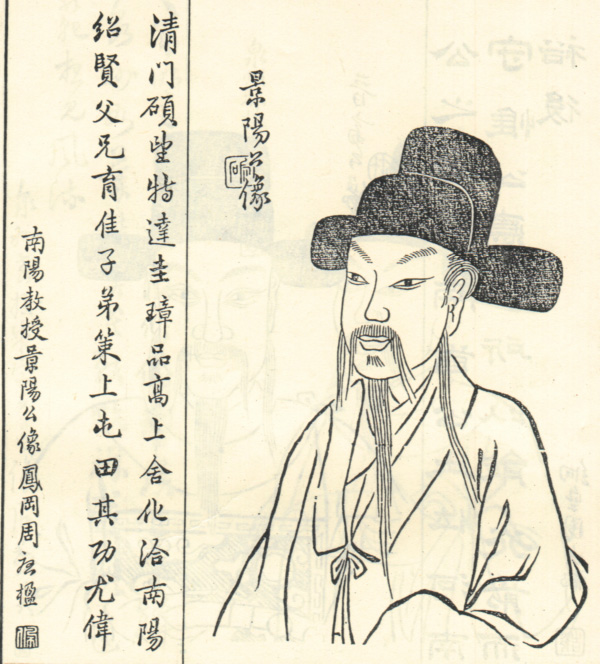 景陽公像
清門碩望特達圭璋品高上舍化洽南陽
紹賢父兄育佳子弟策上屯田其功尤偉
南陽教授景陽公像鳳岡周 楹